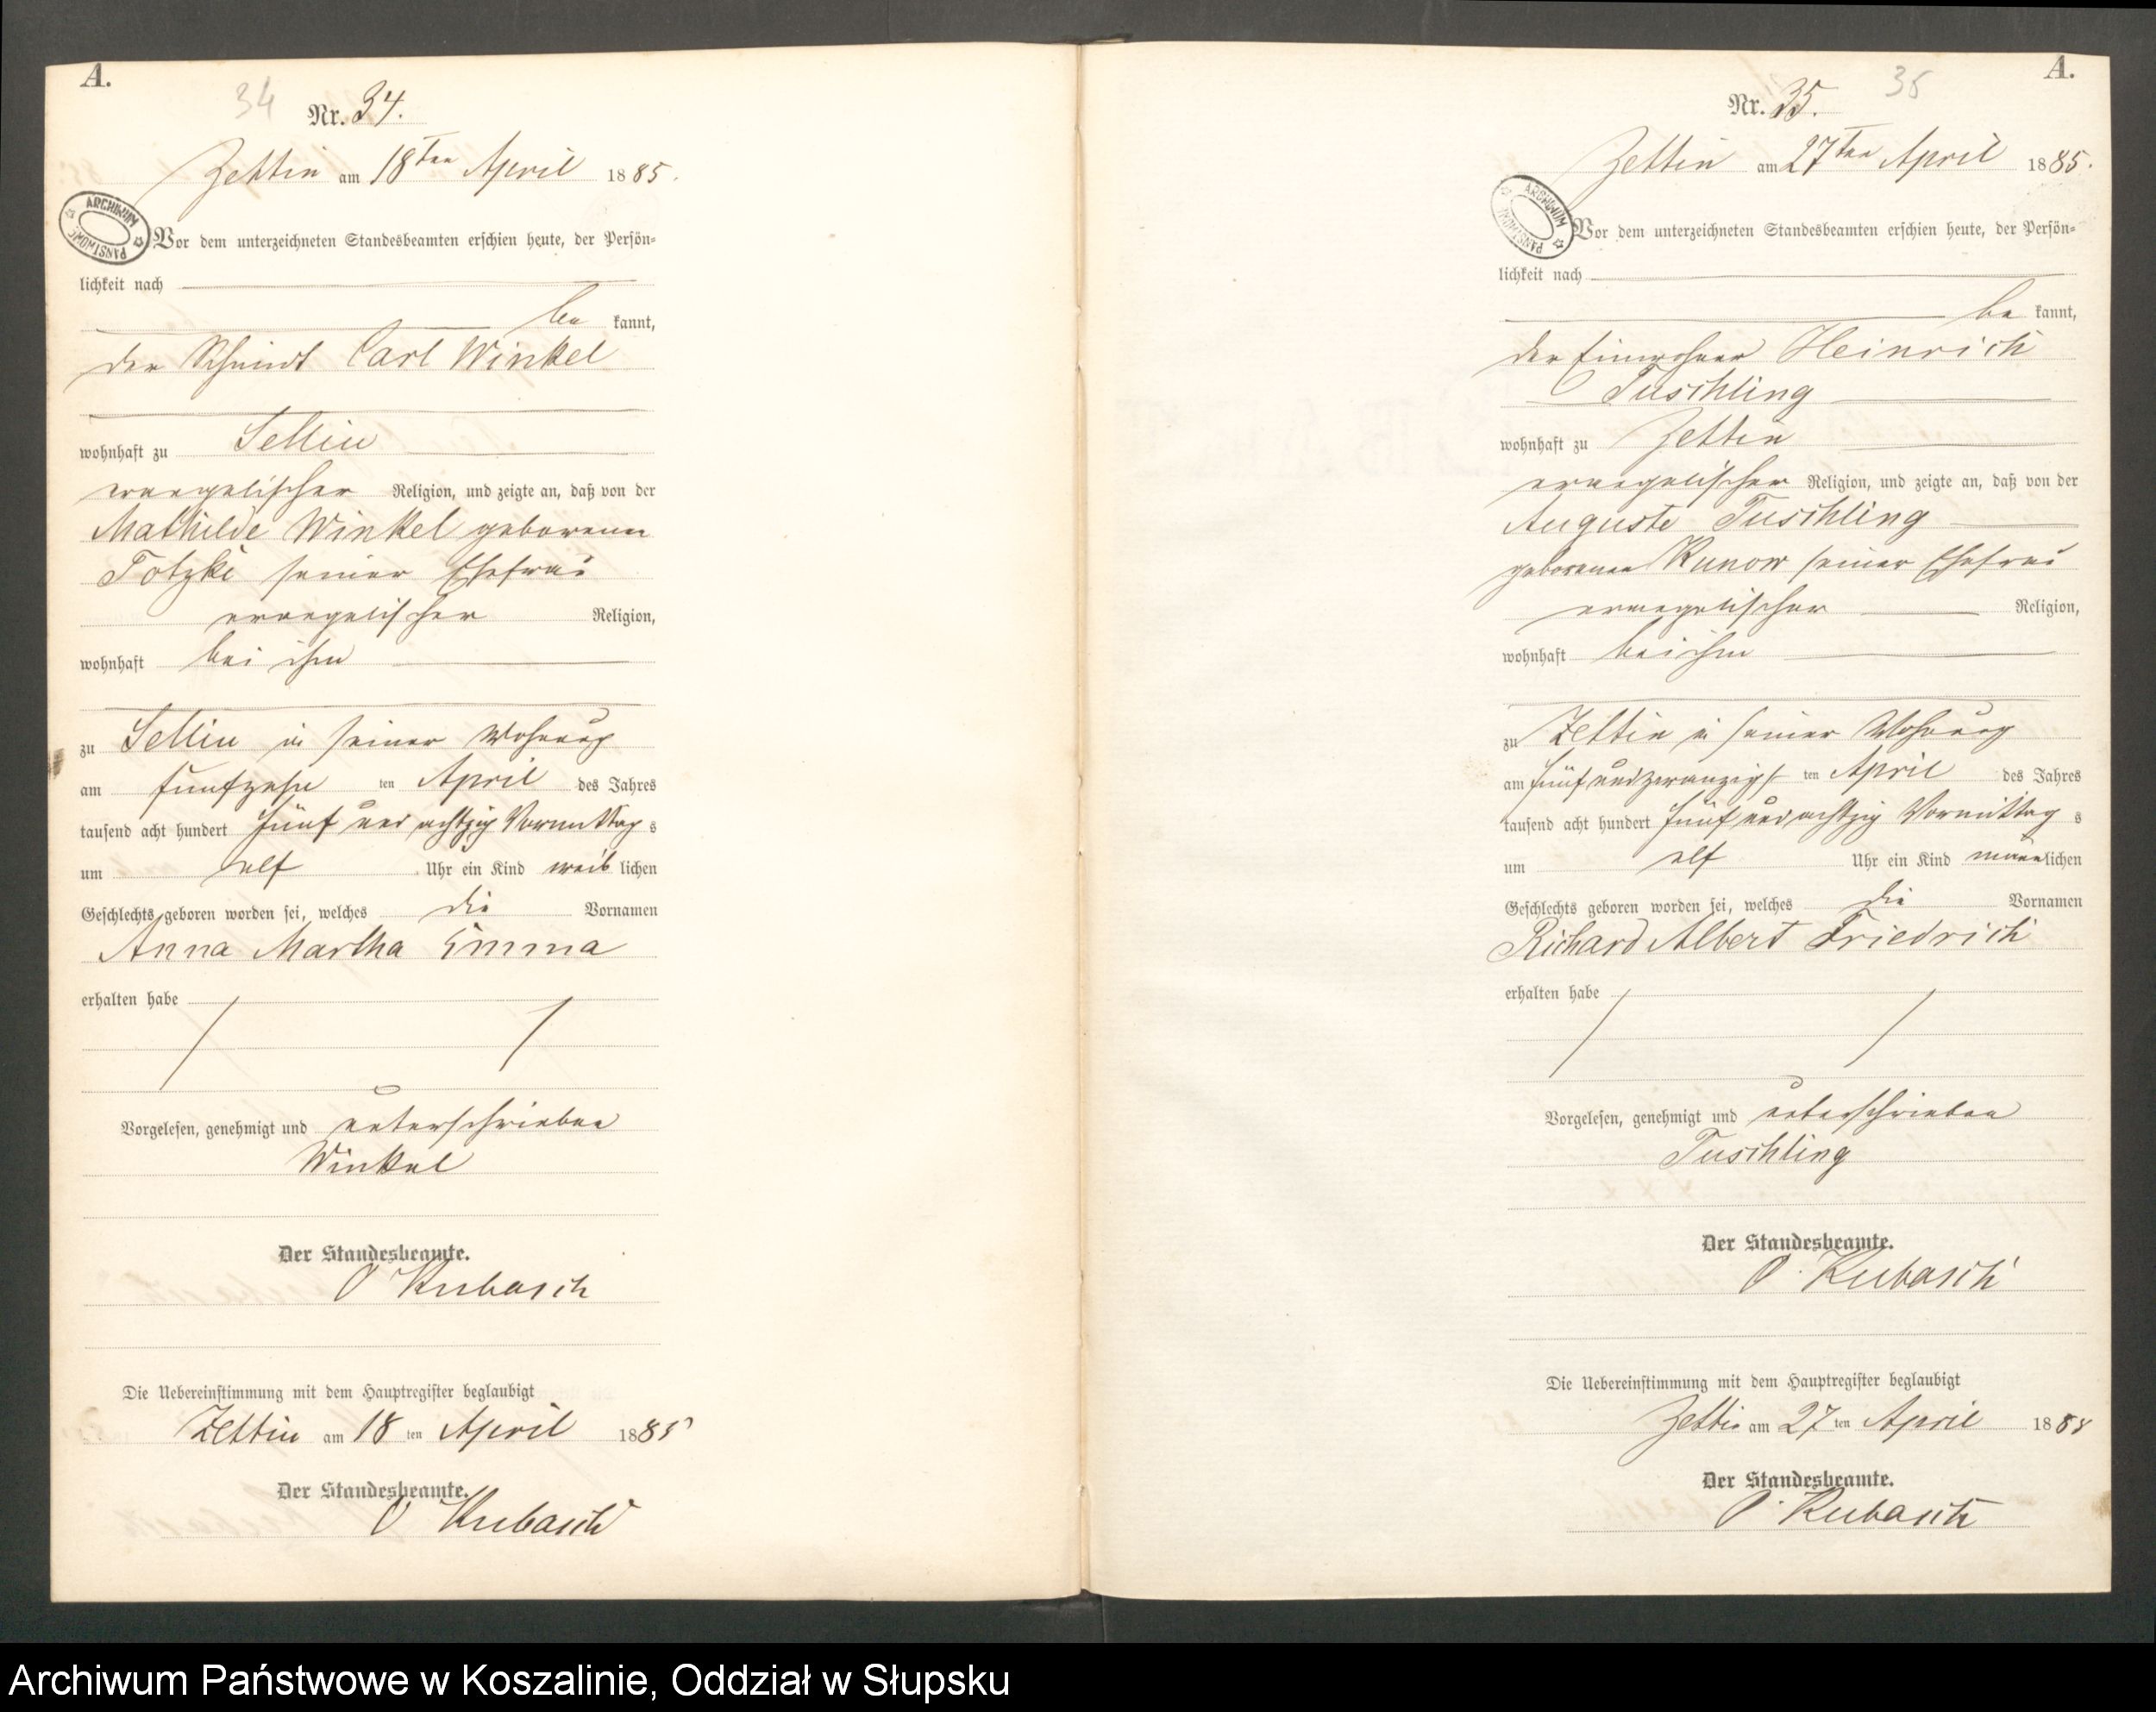 A.
34
Nr. 34.
Zettin am 18ten April 1885.
ARCHIWUM PAŃSTWOWE
Vor dem unterzeichneten Standesbeamten erschien heute, der Persön-
lichkeit nach
be kannt,
der Schmidt Carl Winkel
wohnhaft zu Sellin
evangelischer Religion, und zeigte an, daß von der
Mathilde Winkel geborenen
Totzke seiner Ehefrau
evangelischer Religion,
wohnhaft bei ihm
zu Sellin in seiner Wohnung
am fünfzehn ten April des Jahres
tausend acht hundert fünf und achtzig Vormittag s
um elf Uhr ein Kind weib lichen
Geschlechts geboren worden sei, welches die Vornamen
Anna Martha Emma
erhalten habe
Vorgelesen, genehmigt und unterschrieben
Winkel
Der Standesbeamte.
O Kubasch
Die Uebereinstimmung mit dem Hauptregister beglaubigt
Zettin am 18 ten April 1885
Der Standesbeamte.
O Kubasch
A.
35
Nr. 35.
Zettin am 27ten April 1885.
ARCHIWUM PAŃSTWOWE
Vor dem unterzeichneten Standesbeamten erschien heute, der Persön-
lichkeit nach
be kannt,
der Einwohner Heinrich
Tuschling
wohnhaft zu Zettin
evangelischer Religion, und zeigte an, daß von der
Auguste Tuschling
geborenen Kunow seiner Ehefrau
evangelischer Religion,
wohnhaft bei ihm
zu Zettin in seiner Wohnung
am fünfundzwanzigs ten April des Jahres
tausend acht hundert fünf und achtzig Vormittag s
um elf Uhr ein Kind männlichen
Geschlechts geboren worden sei, welches die Vornamen
Richard Albert Friedrich
erhalten habe
Vorgelesen, genehmigt und unterschrieben
Tuschling
Der Standesbeamte.
O. Kubasch
Die Uebereinstimmung mit dem Hauptregister beglaubigt
Zettin am 27 ten April 1885
Der Standesbeamte.
O. Kubasch
Archiwum Państwowe w Koszalinie, Oddział w Słupsku